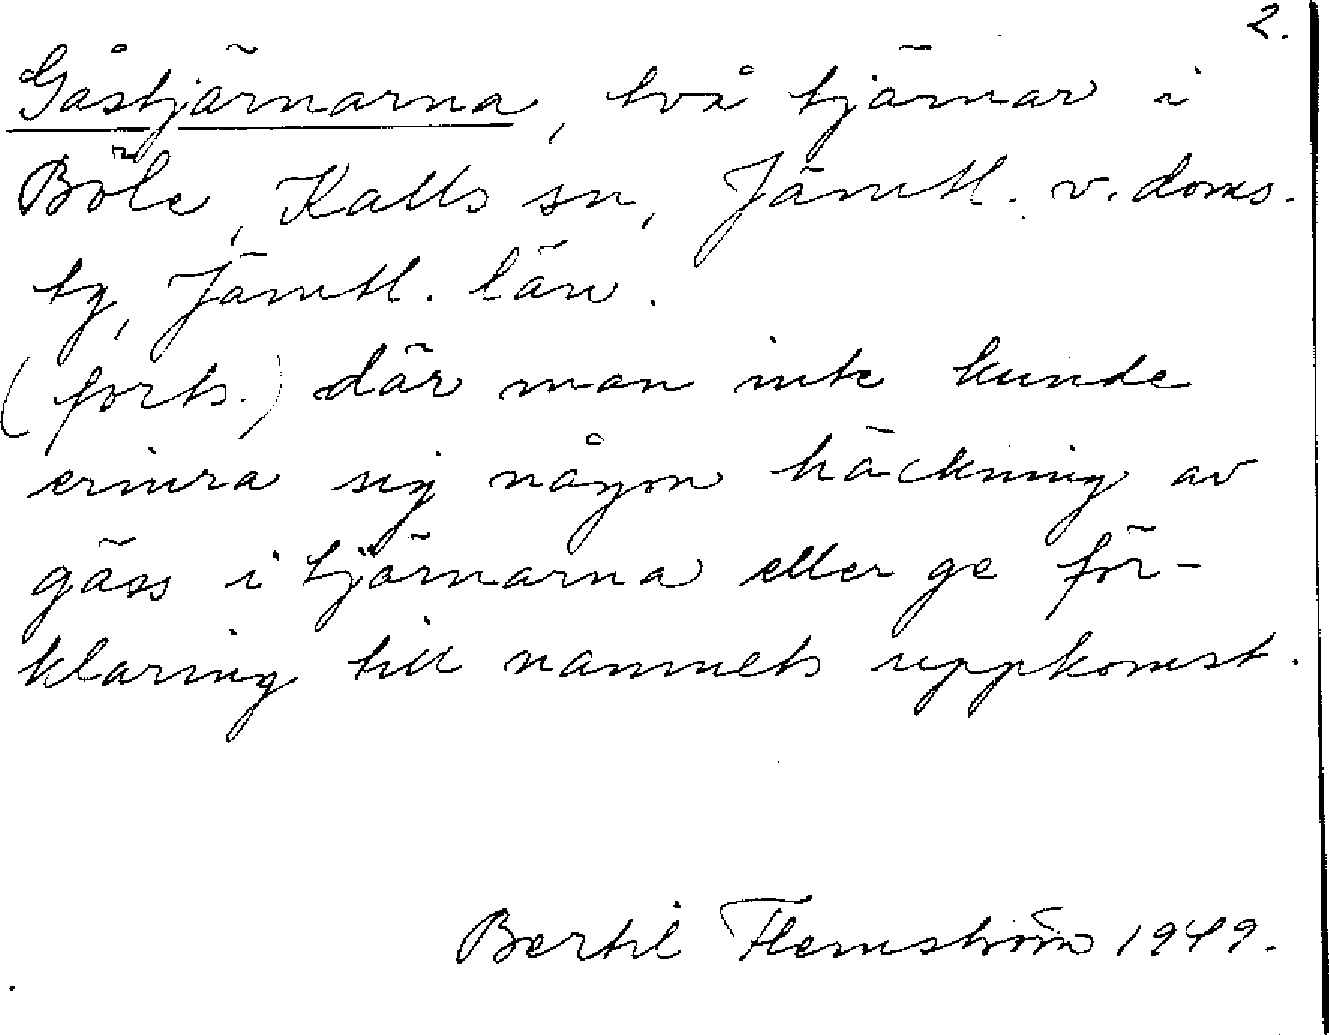 2.
Gåstjärnarna, två tjärnar i
Böle, Kalls sn, Jämtl. v. doms.
tg, Jämtl. län.
(forts.) där man inte kunde
erinra sig någon häckning av
gäss i tjärnarna eller ge för-
klaring till namnets uppkomst.
Bertil Flemström 1949.